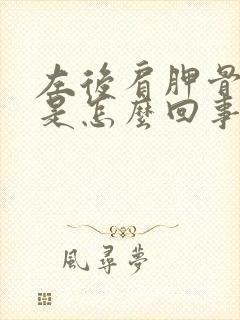 左後肩胛骨
是怎麼回事
風尋夢